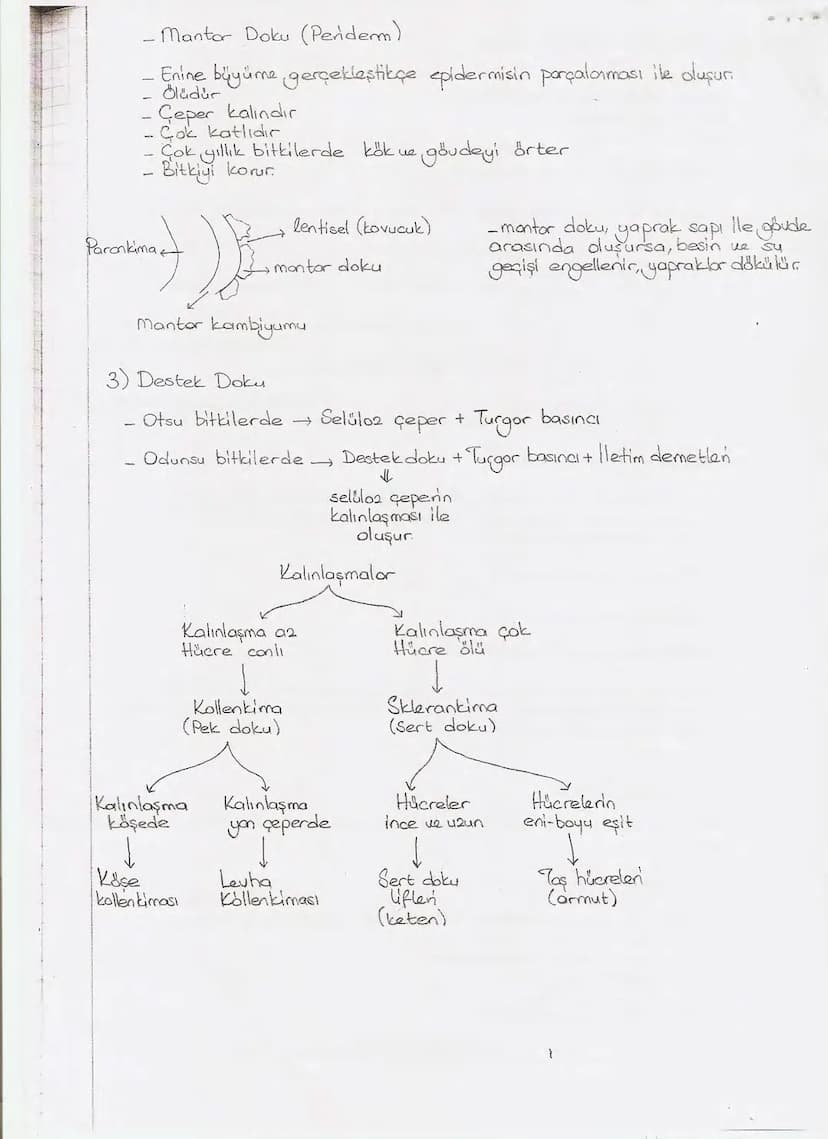 - Mantar Doku (Periderm)
- Enine büyüme gerçekleştikçe epidermisin parçalanması ile oluşur.
- Ölüdür
- Çeper kalındır
- Çok katlıdır
- Çok yıllık bitkilerde kök ve gövdeyi örter
- Bitkiyi korur.
Parankima
lentisel (kovucuk)
mantar doku
Mantar kambiyumu
- mantar doku, yaprak sapı ile gövde
arasında oluşursa, besin ve su
geçişi engellenir, yapraklar dökülür.
3) Destek Doku
- Otsu bitkilerde → Selüloz çeper + Turgor basıncı
- Odunsu bitkilerde → Destek doku + Turgor basıncı + İletim demetleri
⇓
selüloz çeperin
kalınlaşması ile
oluşur.
Kalınlaşmalar
Kalınlaşma az
Hücre canlı
Kalınlaşma çok
Hücre ölü
Kollenkima
(Pek doku)
Sklerankima
(Sert doku)
Kalınlaşma
köşede
Kalınlaşma
yan çeperde
Hücreler
ince ve uzun
Hücrelerin
eni-boyu eşit
Köşe
kollenkiması
Levha
Kollenkiması
Sert doku
lifleri
(keten)
Taş hücreleri
(armut)